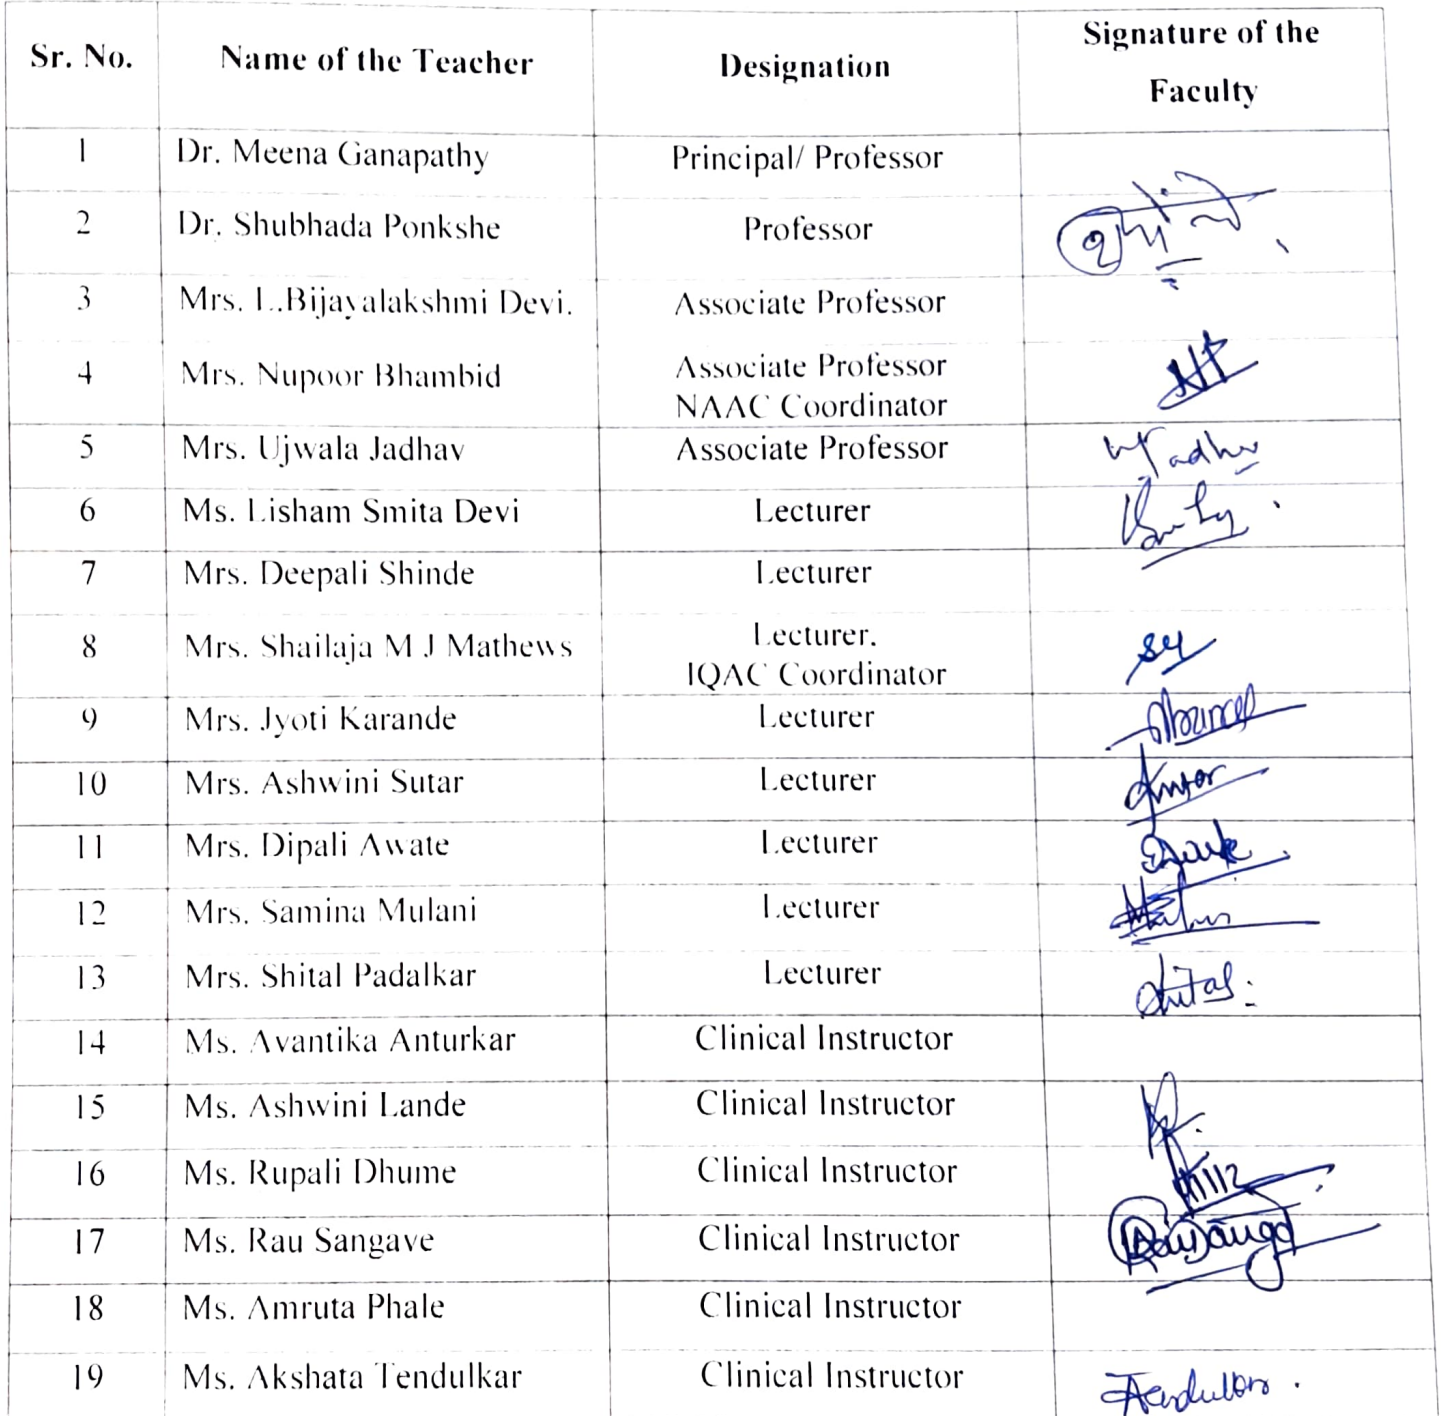 Sr. No. Name of the Teacher Designation Signature of the Faculty
1 Dr. Meena Ganapathy Principal/ Professor
2 Dr. Shubhada Ponkshe Professor
3 Mrs. L.Bijayalakshmi Devi. Associate Professor
4 Mrs. Nupoor Bhambid Associate Professor
NAAC Coordinator
5 Mrs. Ujwala Jadhav Associate Professor
6 Ms. Lisham Smita Devi Lecturer
7 Mrs. Deepali Shinde Lecturer
8 Mrs. Shailaja M J Mathews Lecturer.
IQAC Coordinator
9 Mrs. Jyoti Karande Lecturer
10 Mrs. Ashwini Sutar Lecturer
11 Mrs. Dipali Awate Lecturer
12 Mrs. Samina Mulani Lecturer
13 Mrs. Shital Padalkar Lecturer
14 Ms. Avantika Anturkar Clinical Instructor
15 Ms. Ashwini Lande Clinical Instructor
16 Ms. Rupali Dhume Clinical Instructor
17 Ms. Rau Sangave Clinical Instructor
18 Ms. Amruta Phale Clinical Instructor
19 Ms. Akshata Tendulkar Clinical Instructor